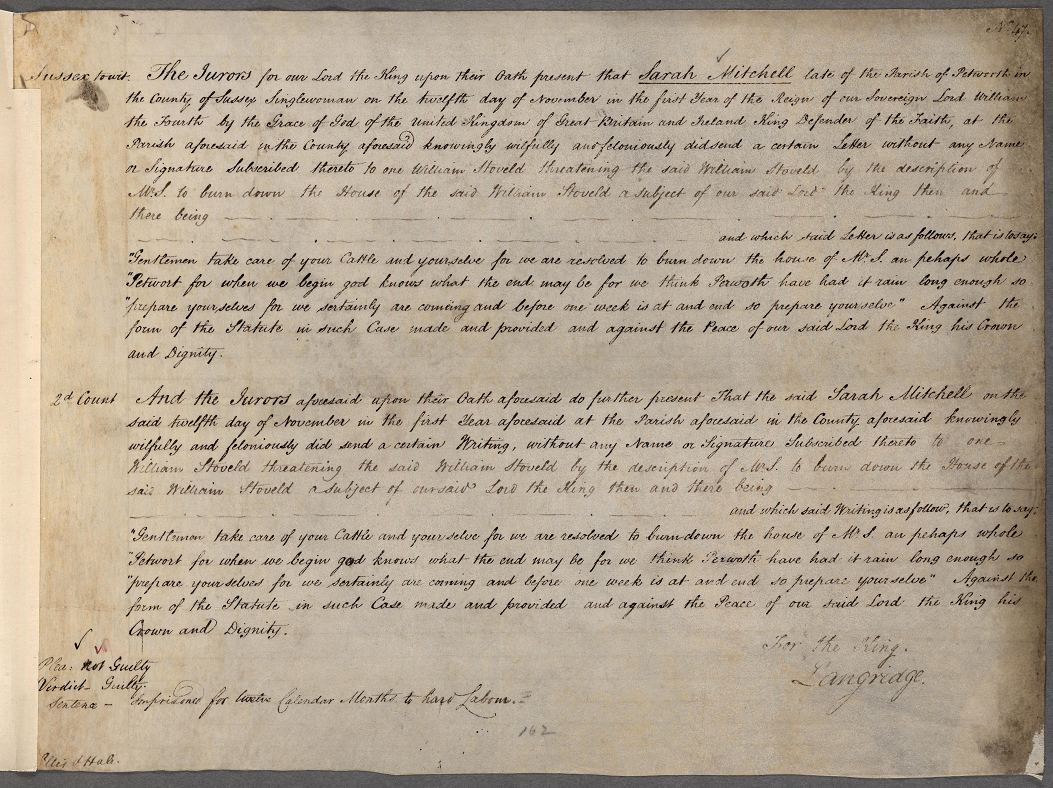 No. 47.
Sussex to wit. The Jurors for our Lord the King upon their Oath present that Sarah Mitchell late of the Parish of Petworth in
the County of Sussex Singlewoman on the twelfth day of November in the first Year of the Reign of our Sovereign Lord William
the Fourth by the Grace of God of the United Kingdom of Great Britain and Ireland King Defender of the Faith, at the
Parish aforesaid in the County aforesaid knowingly wilfully and feloniously did send a certain Letter without any Name
or Signature Subscribed thereto to one William Stoveld threatening the said William Stoveld by the description of
Mr. S. to burn down the House of the said William Stoveld a subject of our said Lord the King then and
there being
and which said Letter is as follows, that is to say:
"Gentlemen take care of your Cattle and yourselve for we are resolved to burn down the house of Mr. S. an pehaps whole
"Petwort for when we begin god knows what the end may be for we think Perworth have had it rain long enough so
"prepare yourselves for we sertainly are comeing and before one week is at and end so prepare yourselve" Against the
form of the Statute in such Case made and provided and against the Peace of our said Lord the King his Crown
and Dignity.
2d Count And the Jurors aforesaid upon their Oath aforesaid do further present That the said Sarah Mitchell on the
said twelfth day of November in the first Year aforesaid at the Parish aforesaid in the County aforesaid knowingly
wilfully and feloniously did send a certain Writing, without any Name or Signature Subscribed thereto to one
William Stoveld threatening the said William Stoveld by the description of Mr. S. to burn down the House of the
said William Stoveld a subject of our said Lord the King then and there being
and which said Writing is as follow, that is to say:
"Gentlemen take care of your Cattle and yourselve for we are resolved to burn down the house of Mr. S. an pehaps whole
"Petwort for when we begin god knows what the end may be for we think Perworth have had it rain long enough so
"prepare yourselves for we sertainly are coming and before one week is at and end so prepare yourselve" Against the
form of the Statute in such Case made and provided and against the Peace of our said Lord the King his
Crown and Dignity.
For the King.
Langridge.
Plea: not Guilty
Verdict - Guilty.
Sentence - Imprisoned for twelve Calendar Months to hard Labour.
162
& Hale.